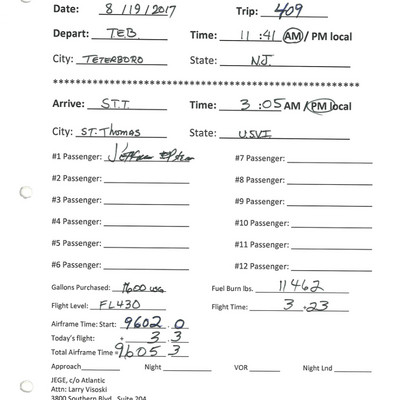 Date: 8/19/2017 Trip: 409
Depart: TEB Time: 11:41 AM / PM local
City: TETERBORO State: N.J.
**********************************************
Arrive: S.T.T. Time: 3:05 AM / PM local
City: ST. THOMAS State: USVI
#1 Passenger: #7 Passenger:
#2 Passenger: #8 Passenger:
#3 Passenger: #9 Passenger:
#4 Passenger: #10 Passenger:
#5 Passenger: #11 Passenger:
#6 Passenger: #12 Passenger:
Gallons Purchased: 1600 USG Fuel Burn lbs. 11462
Flight Level: FL430 Flight Time: 3.23
Airframe Time: Start: 9602.0
Today's flight: + 3.3
Total Airframe Time = 9605.3
Approach Night VOR Night Lnd
JEGE, c/o Atlantic
Attn: Larry Visoski
3800 Southern Blvd, Suite 204